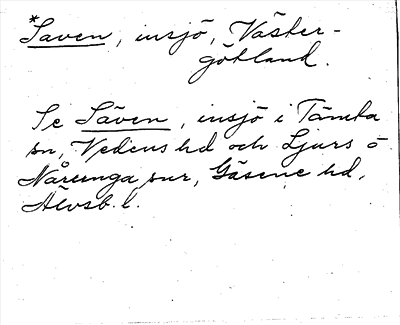 *Saven, insjö, Väster-
götland.
Se Säven, insjö i Tämta
sn, Vedens hd och Ljurs o
Nårunga snr, Gäsene hd,
Älvsb. l.